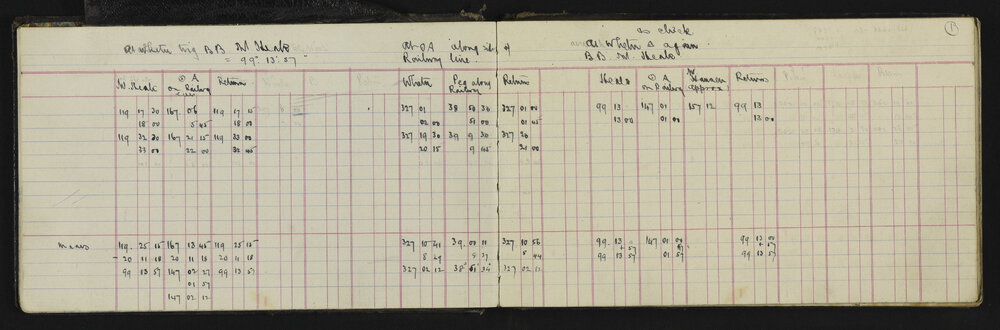 at Whetu trig BB Mt Heale
= 99° 13' 57"
Mt. Heale
on Railway
Return
119 17 30 167 06 119 17 15
18 00 5 45 18 00
119 32 30 167 21 15 119 33 00
33 00 22 00 33 45
means 119. 25 15 167 13 45 119 25 15
20 11 18 20 11 18 20 11 18
99 13 57 147 02 27 99 13 57
01 57
147 02 12
At A along side of
Railway line.
Whetu Peg along Railway Return
327 01 38 50 30 327 01 00
02 00 51 00 01 45
327 19 30 39 9 30 327 20
20 15 9 45 21 00
327 10 41 39. 00 11 327 10 56
8 29 8 44
327 02 12 38° 51' 327 02 12
as check
1
at Whetu again
BB Mt. Heale
Heale A on Railway approx Return
99 13 147 01 157 12 99 13
13 00 01 00 13 00
99. 13 147 01 00 99 13 00
+ 57 57 + 57
99 13 57 01 57 99 13 57